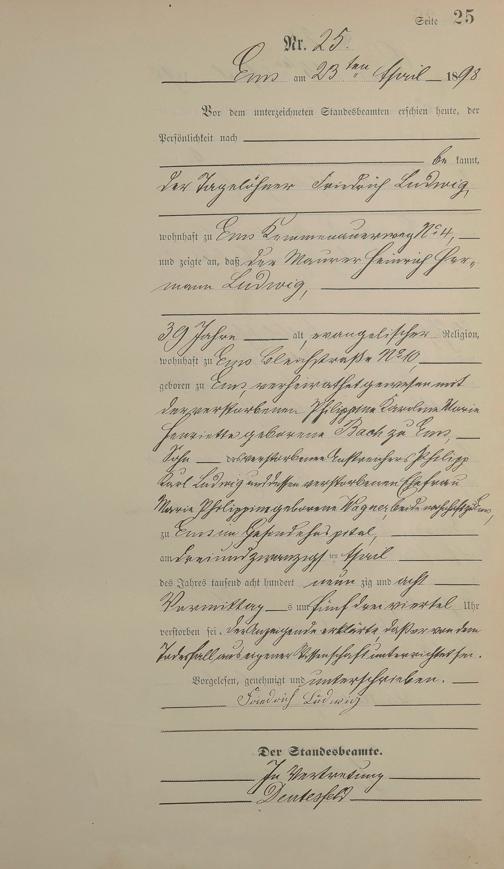 Seite 25
Nr. 25.
Ems am 23ten April 1898
Vor dem unterzeichneten Standesbeamten erschien heute, der
Persönlichkeit nach
be kannt,
der Tagelöhner Friedrich Ludwig,
wohnhaft zu Ems Kemmenauerweg No 4,
und zeigte an, daß der Maurer Heinrich Her-
mann Ludwig,
39 Jahre alt, evangelischer Religion,
wohnhaft zu Ems Bleichstraße No 10,
geboren zu Ems, verheirathet gewesen mit
der verstorbenen Philippine Karoline Marie
Henriette geborene Bach zu Ems,
Sohn des verstorbenen Philipp
Karl Ludwig und dessen verstorbenen Ehefrau
Marie Philippine geborene Wagner, beide wohnhaft zu Ems,
zu Ems im
am dreiundzwanzigsten April
des Jahres tausend acht hundert neun zig und acht
Vormittag s um fünf drei viertel Uhr
verstorben sei. Der Anzeigende erklärte, daß er von dem
Todesfall aus eigener Wissenschaft unterrichtet sei.
Vorgelesen, genehmigt und unterschrieben.
Friedrich Ludwig
Der Standesbeamte.
In Vertretung